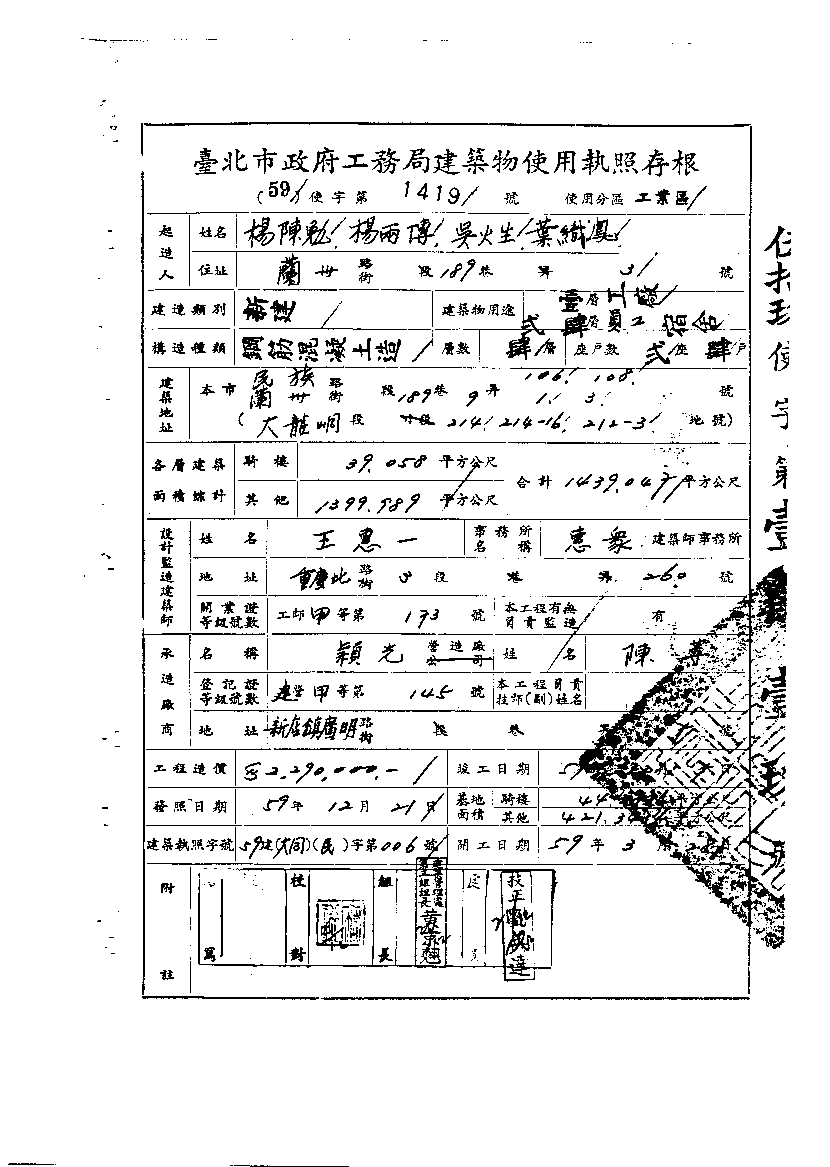 臺北市政府工務局建築物使用執照存根
(59)使字第 1419 號 使用分區 工業區
起造人 姓名 楊陳勉 楊雨傳 吳火生 葉織鳳
住址 蘭州 路街 段 189 巷 弄 3 號
建造類別 新建 建築物用途 壹層工廠 貳肆層員工宿舍
構造種類 鋼筋混凝土造 層數 肆層 座戶數 貳座 肆戶
建築地址 本市 民族 蘭州 路街 段 189 巷 9 弄 106 108 1 3 號
(大龍峒段 小段 214 214-16 212-3 地號)
各層建築面積總計 騎樓 39.058 平方公尺 合計 1439.047 平方公尺
其他 1399.989 平方公尺
設計監造建築師 姓名 王惠一 事務所名稱 惠眾 建築師事務所
地址 重慶北 路街 3 段 巷 弄 260 號
開業證等級號數 工師甲等第 173 號 本工程有無負責監造 有
承造廠商 名稱 穎光 營造廠公司 姓名 陳
登記證等級號數 建營甲等第 145 號 本工程負責技師(副)姓名
地址 新店鎮廣明 路街 段 巷 號
工程造價 2,290,000.- 竣工日期 日
發照日期 59年 12月 21日 基地面積 騎樓 44 平方公尺
其他 421.3 平方公尺
建築執照字號 59建(大同)(民)字第006號 開工日期 59年 3月
附註 寫 校對 組長
伍拾玖使字第壹